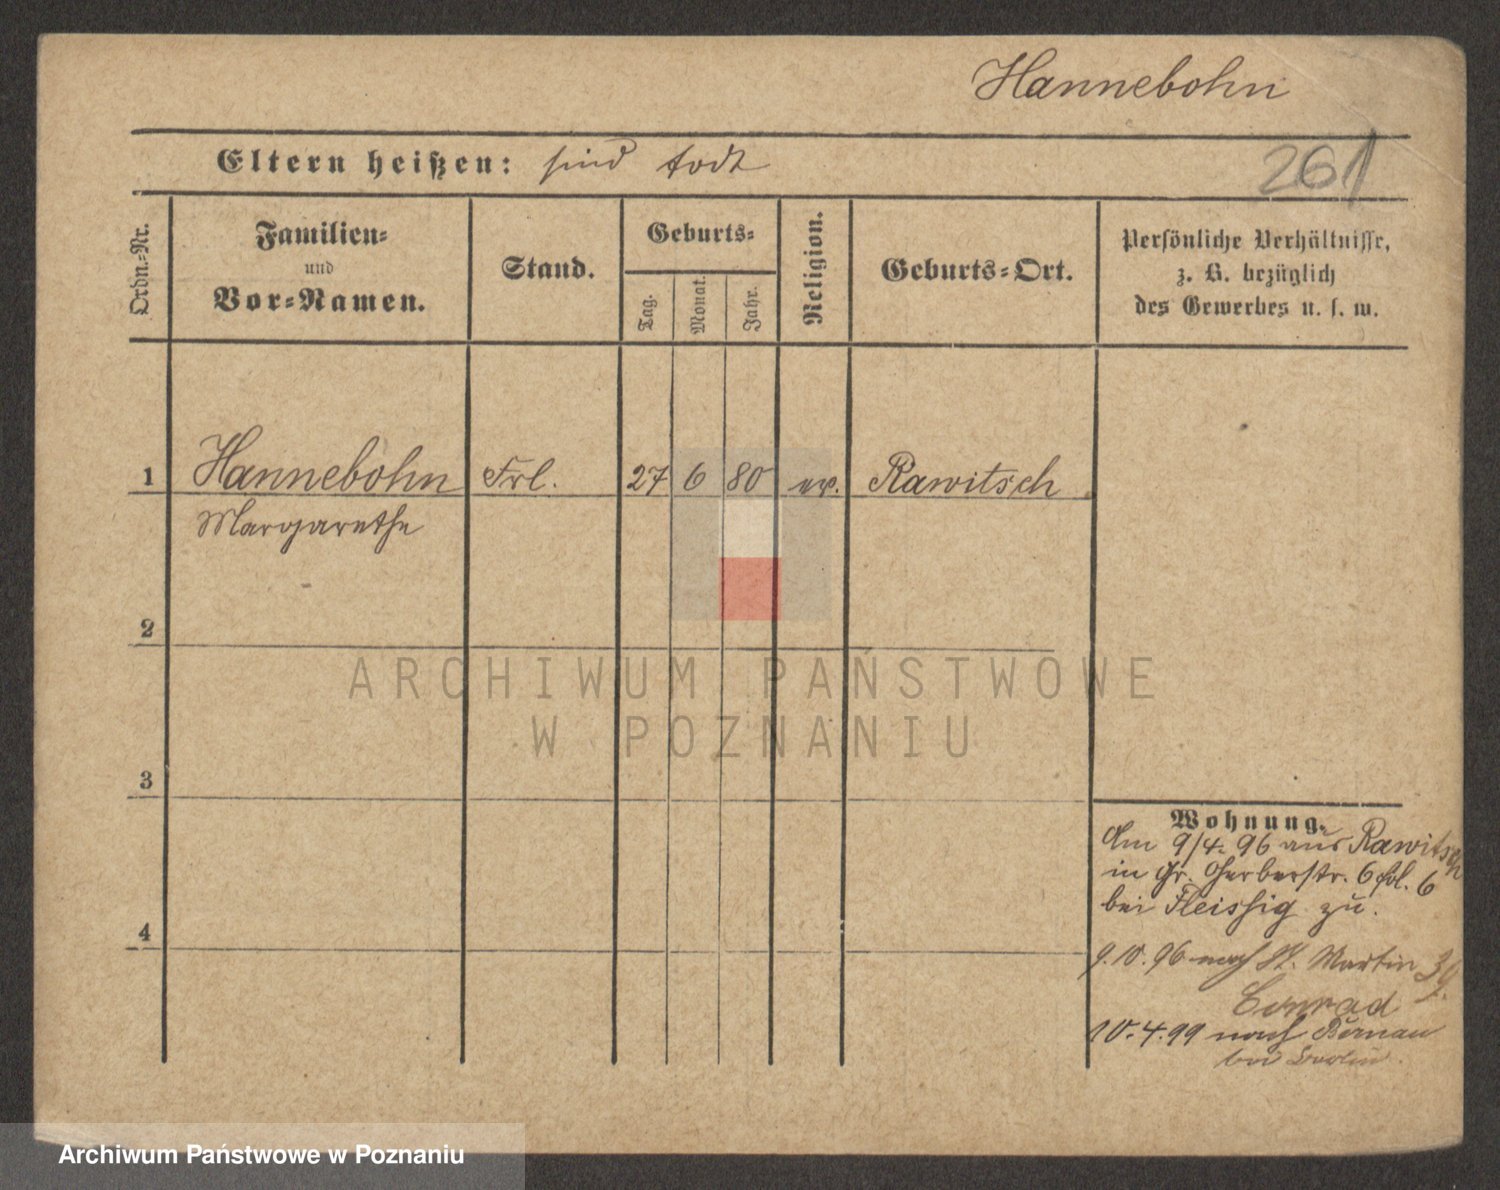 Hannebohn
Eltern heißen: sind todt
261
Ordn.-Nr.
Familien-
und
Vor-Namen.
Stand.
Geburts-
Tag.
Monat.
Jahr.
Religion.
Geburts-Ort.
Persönliche Verhältnisse,
z. B. bezüglich
des Gewerbes u. s. w.
1 Hannebohn Frl. 27 6 80 ev. Rawitsch
Margarethe
2
3
4
Wohnung.
Am 9/4. 96 aus Rawitsch
in Gr. Gerberstr. 6 fol. 6
bei Fleissig zu.
9.10.96 nach St. Martin 39.
Conrad
10.4.99 nach Bernau
bei Berlin.
ARCHIWUM PAŃSTWOWE
W POZNANIU
Archiwum Państwowe w Poznaniu